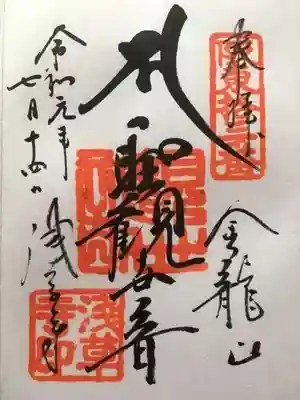 奉拝
坂東十三番
金龍山
聖観世音
浅草寺
浅草寺印
令和元年
七月十四日